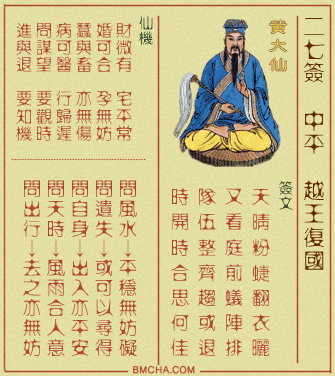 二七簽 中平 越王復國
黃大仙
簽文
天晴粉蜨翻衣曬
又看庭前蟻陣排
隊伍整齊趨或退
時開時合思何佳
仙機
財微有 宅平常
婚可合 孕無妨
蠶與畜 亦無傷
病可醫 行歸遲
問謀望 要觀時
進與退 要知機
問風水→平穩無妨礙
問遺失→或可以尋得
問自身→出入亦平安
問天時→風雨合人意
問出行→去之亦無妨
BMCHA.COM